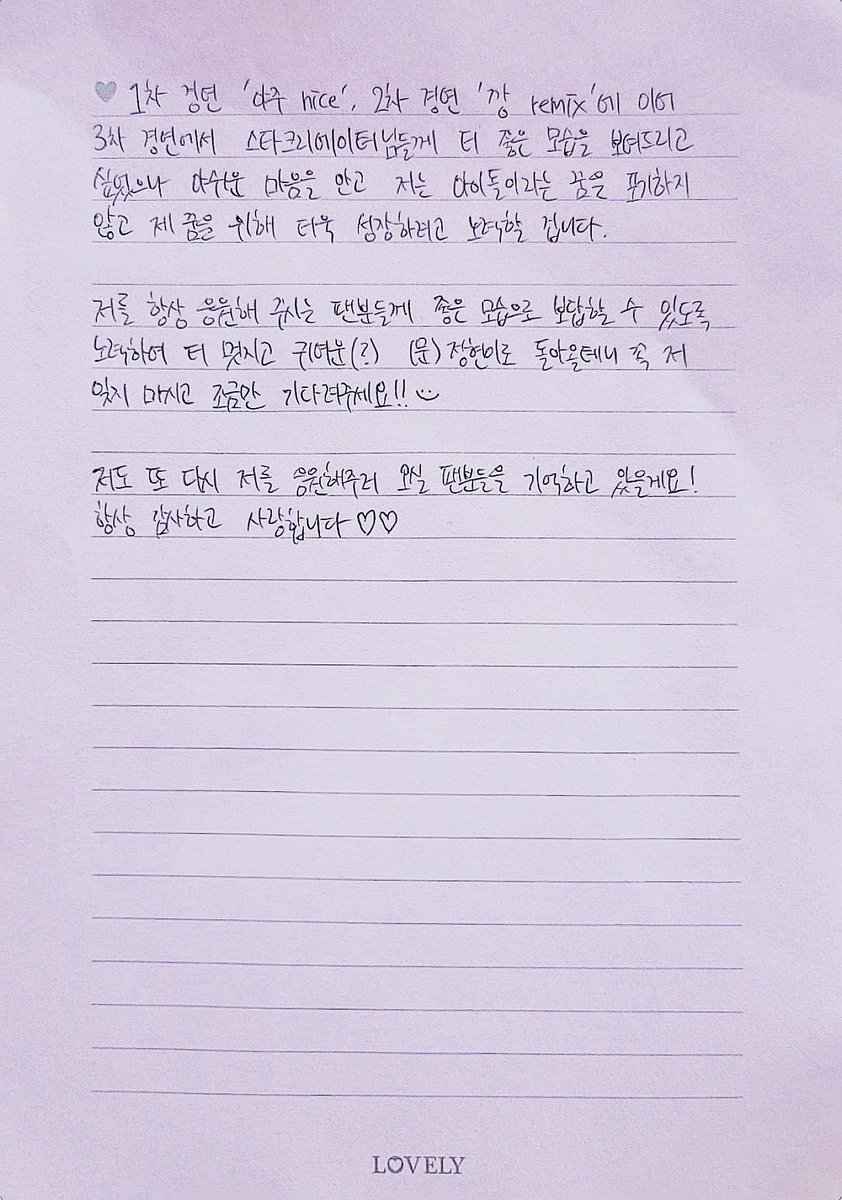 1차 경연 '아주 nice', 2차 경연 '깡 remix'에 이어
3차 경연에서 스타크리에이터님들께 더 좋은 모습을 보여드리고
싶었으나 아쉬운 마음을 안고 저는 아이돌이라는 꿈을 포기하지
않고 제 꿈을 위해 더욱 성장하려고 노력할 겁니다.
저를 항상 응원해 주시는 팬분들께 좋은 모습으로 보답할 수 있도록
노력하여 더 멋지고 귀여운(?) (문)정현이로 돌아올테니 꼭 저
잊지 마시고 조금만 기다려주세요!!
저도 또 다시 저를 응원해주러 오실 팬분들을 기억하고 있을게요!
항상 감사하고 사랑합니다♡♡
LOVELY